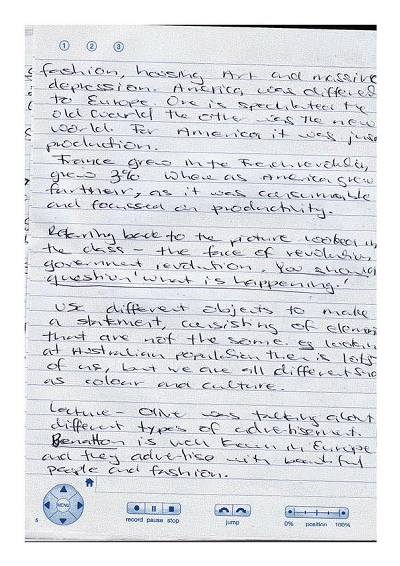 ① ② ③
fashion, housing Art and massive
depression. America was differe
to Europe. One is the
old world the other was the new
world. For America it was
production.
France grew in the French
grew 3% where as America grew
further, as it was
and focussed on productivity.
Referring back to the picture looked
the class - the face of revolution,
government revolution. You should
question 'what is happening.'
Use different objects to make
a statement, consisting of
that are not the same. eg looking
at Australian population there is lots
of us, but we are all different
as colour and culture.
Lecture - Olive was talking about
different types of advertisement.
Benetton is well known in Europe
and they advertise with beautiful
people and fashion.
MENU
record pause stop
jump
0% position 100%
5